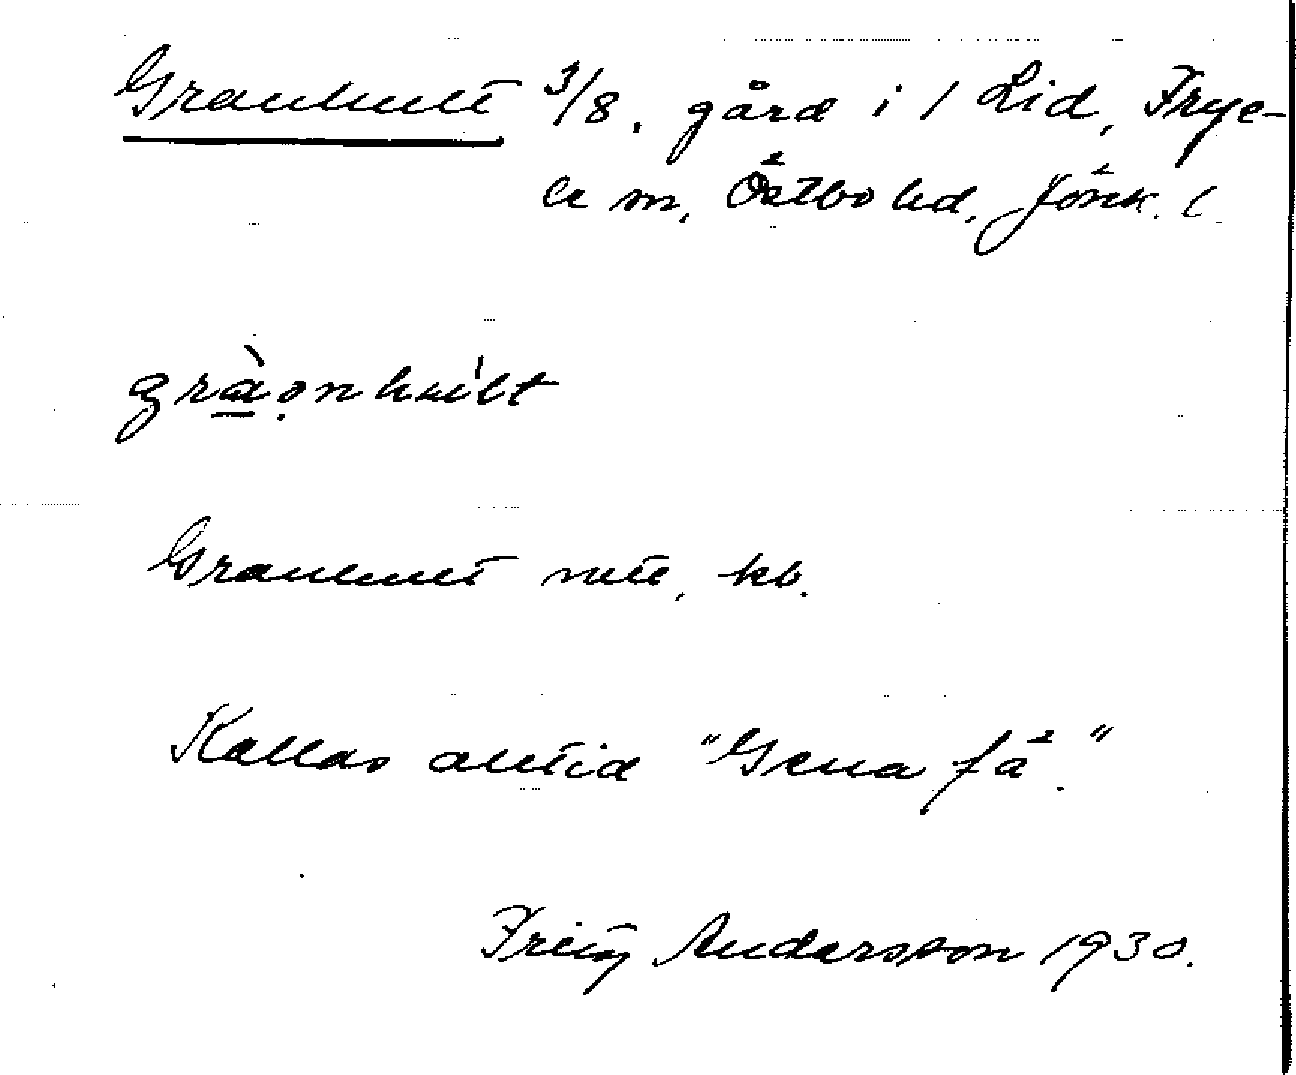 Granhult 3/8, gård i 1 Lid, Frye-
le sn, Östbo hd, Jönk. l.
gràọnhúlt
Granhult mtl, kb.
Kallas alltid "Gena få."
Andersson 1930.